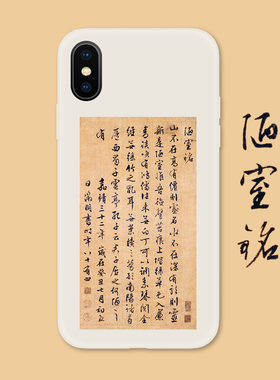 陋室銘
山不在高有僊則名水不在深有龍則靈
斯是陋室惟吾德馨苔痕上階綠草色入簾
青談咲有鴻儒往來無白丁可以調素琴閱金
經無絲竹之亂耳無案牘之勞形南陽諸葛
廬西蜀子雲亭孔子云夫子居之何陋之
有 嘉靖三十二年歲在癸丑七月初
日徵明書時年八十有四
陋室銘